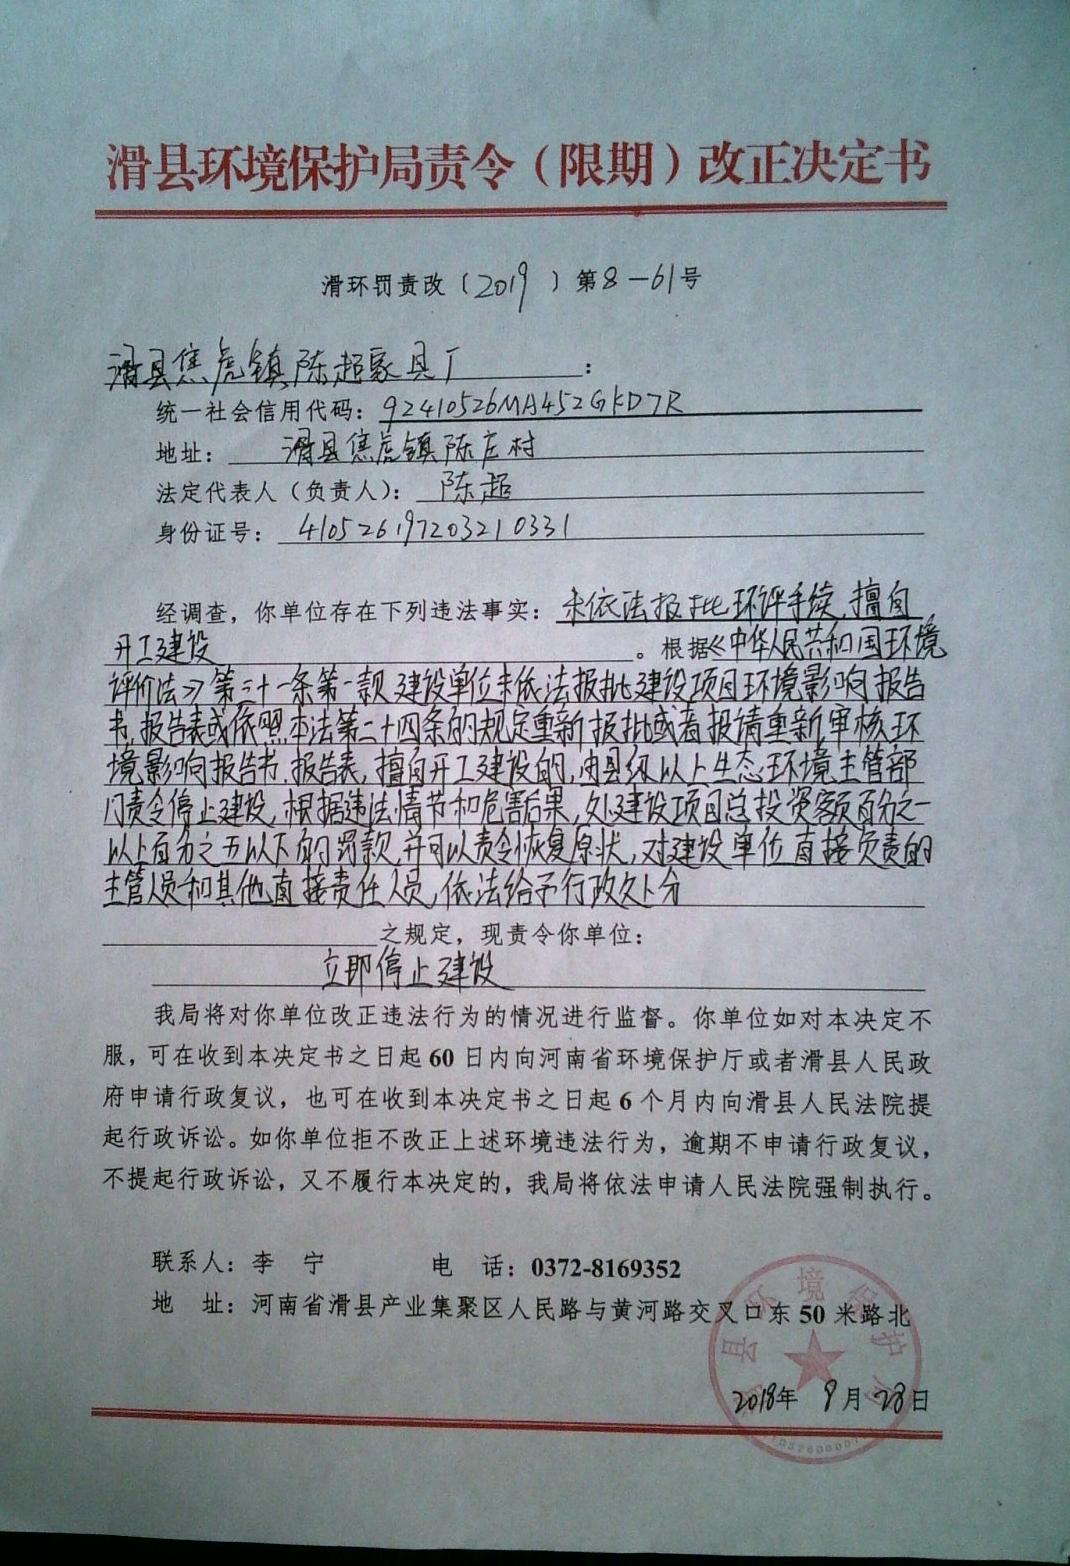 滑县环境保护局责令（限期）改正决定书
滑环罚责改〔2019〕第8-61号
滑县焦虎镇陈超家具厂：
统一社会信用代码：92410526MA452GKD7R
地址：滑县焦虎镇陈庄村
法定代表人（负责人）：陈超
身份证号：410526197203210331
经调查，你单位存在下列违法事实：未依法报批环评手续，擅自
开工建设。根据《中华人民共和国环境
评价法》第三十一条第一款 建设单位未依法报批建设项目环境影响报告
书、报告表或依照本法第二十四条的规定重新报批或者报请重新审核环
境影响报告书、报告表，擅自开工建设的，由县级以上生态环境主管部
门责令停止建设，根据违法情节和危害后果，处建设项目总投资额百分之一
以上百分之五以下的罚款，并可以责令恢复原状，对建设单位直接负责的
主管人员和其他直接责任人员，依法给予行政处分
之规定，现责令你单位：
立即停止建设
我局将对你单位改正违法行为的情况进行监督。你单位如对本决定不
服，可在收到本决定书之日起60日内向河南省环境保护厅或者滑县人民政
府申请行政复议，也可在收到本决定书之日起6个月内向滑县人民法院提
起行政诉讼。如你单位拒不改正上述环境违法行为，逾期不申请行政复议，
不提起行政诉讼，又不履行本决定的，我局将依法申请人民法院强制执行。
联系人：李 宁 电 话：0372-8169352
地 址：河南省滑县产业集聚区人民路与黄河路交叉口东50米路北
滑县环境保护局
2018年9月28日